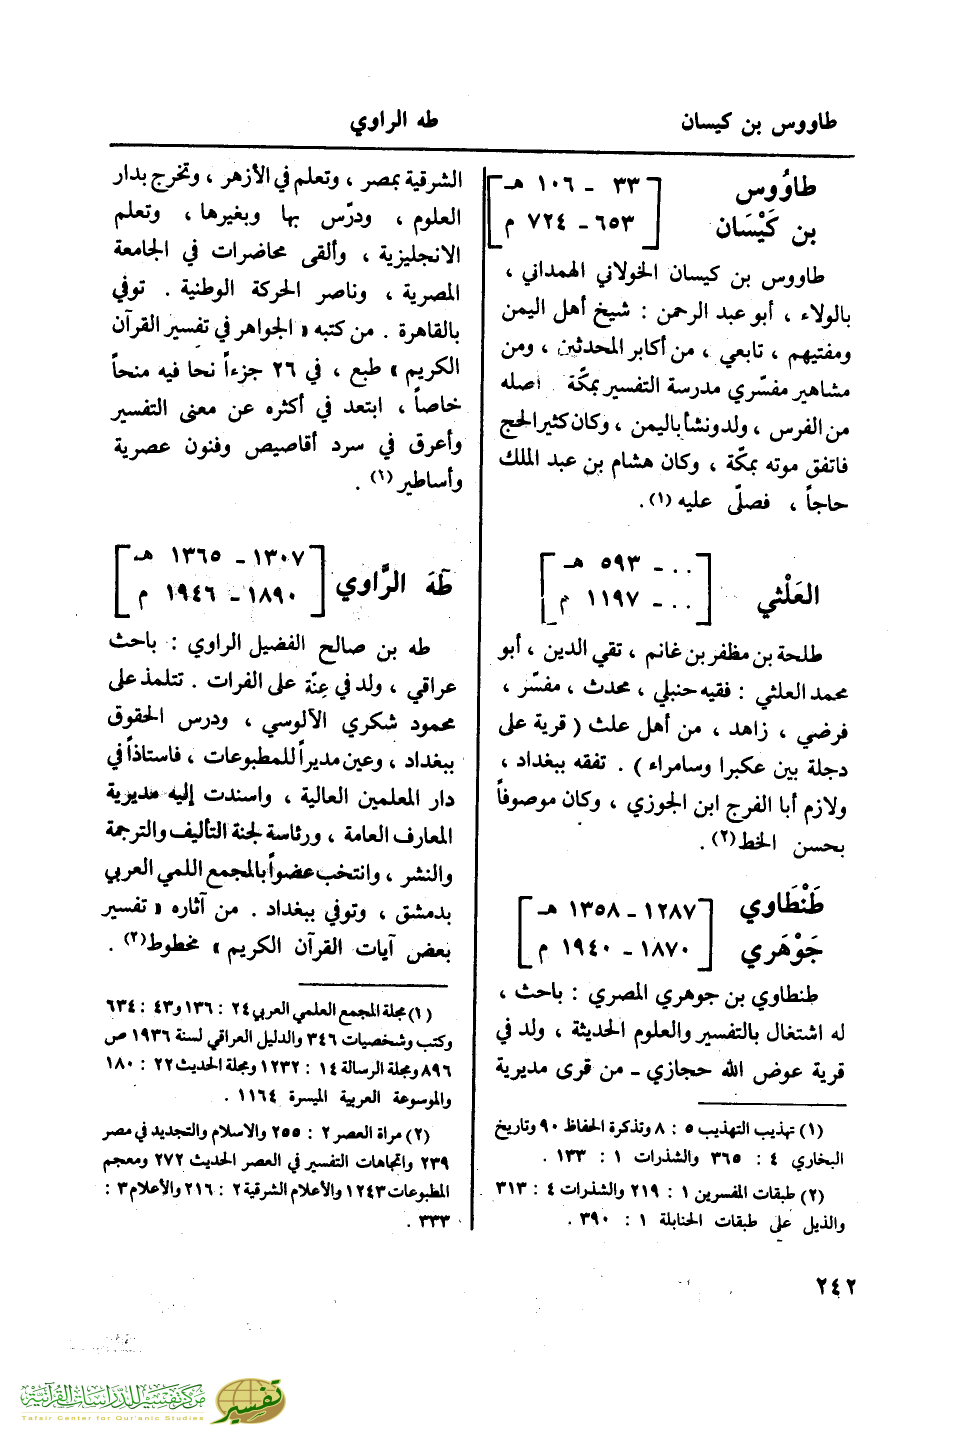 طاووس بن كيسان
طه الراوي
طاوُوس
بن كَيْسَان
٣٣ - ١٠٦ هـ
٦٥٣ - ٧٢٤ م
طاووس بن كيسان الخولاني الهمداني ،
بالولاء ، أبو عبد الرحمن : شيخ أهل اليمن
ومفتيهم ، تابعي ، من أكابر المحدثين ، ومن
مشاهير مفسّري مدرسة التفسير بمكّة . اصله
من الفرس ، ولد ونشأ باليمن ، وكان كثير الحج
فاتفق موته بمكّة ، وكان هشام بن عبد الملك
حاجاً ، فصلّى عليه (١) .
العَلْثي
. . . - ٥٩٣ هـ
. . . - ١١٩٧ م
طلحة بن مظفر بن غانم ، تقي الدين ، أبو
محمد العلثي : فقيه حنبلي ، محدث ، مفسّر ،
فرضي ، زاهد ، من أهل علث ( قرية على
دجلة بين عكبرا وسامراء ) . تفقه ببغداد ،
ولازم أبا الفرج ابن الجوزي ، وكان موصوفاً
بحسن الخط (٢) .
طَنْطَاوي
جَوْهَري
١٢٨٧ - ١٣٥٨ هـ
١٨٧٠ - ١٩٤٠ م
طنطاوي بن جوهري المصري : باحث ،
له اشتغال بالتفسير والعلوم الحديثة ، ولد في
قرية عوض الله حجازي - من قرى مديرية
(١) تهذيب التهذيب ٥ : ٨ وتذكرة الحفاظ ٩٠ وتاريخ
البخاري ٤ : ٣٦٥ والشذرات ١ : ١٣٣ .
(٢) طبقات المفسرين ١ : ٢١٩ والشذرات ٤ : ٣١٣
والذيل على طبقات الحنابلة ١ : ٣٩٠ .
الشرقية بمصر ، وتعلم في الأزهر ، وتخرج بدار
العلوم ، ودرّس بها وبغيرها ، وتعلم
الانجليزية ، وألقى محاضرات في الجامعة
المصرية ، وناصر الحركة الوطنية . توفي
بالقاهرة . من كتبه « الجواهر في تفسير القرآن
الكريم » طبع ، في ٢٦ جزءاً نحا فيه منحاً
خاصاً ، ابتعد في أكثره عن معنى التفسير
وأعرق في سرد أقاصيص وفنون عصرية
وأساطير (١) .
طَهَ الرَّاوي
١٣٠٧ - ١٣٦٥ هـ
١٨٩٠ - ١٩٤٦ م
طه بن صالح الفضيل الراوي : باحث
عراقي ، ولد في عِنّة على الفرات . تتلمذ على
محمود شكري الآلوسي ، ودرس الحقوق
ببغداد ، وعين مديراً للمطبوعات ، فاستاذاً في
دار المعلمين العالية ، واسندت إليه مديرية
المعارف العامة ، ورئاسة لجنة التأليف والترجمة
والنشر ، وانتخب عضواً بالمجمع اللمي العربي
بدمشق ، وتوفي ببغداد . من آثاره « تفسير
بعض آيات القرآن الكريم » مخطوط (٢) .
(١) مجلة المجمع العلمي العربي ٢٤ : ١٣٦ و ٤٣ : ٦٣٤
وكتب وشخصيات ٣٤٦ والدليل العراقي لسنة ١٩٣٦ ص
٨٩٦ ومجلة الرسالة ١٤ : ١٢٣٢ ومجلة الحديث ٢٢ : ١٨٠
والموسوعة العربية الميسرة ١١٦٤ .
(٢) مرآة العصر ٢ : ٢٥٥ والاسلام والتجديد في مصر
٢٣٩ واتجاهات التفسير في العصر الحديث ٢٧٢ ومعجم
المطبوعات ١٢٤٣ والأعلام الشرقية ٢ : ٢١٦ والأعلام ٣ :
٣٣٣ .
٢٤٢
مركز تفسير للدراسات القرآنية
Tafsir Center for Qur'anic Studies
تفسير